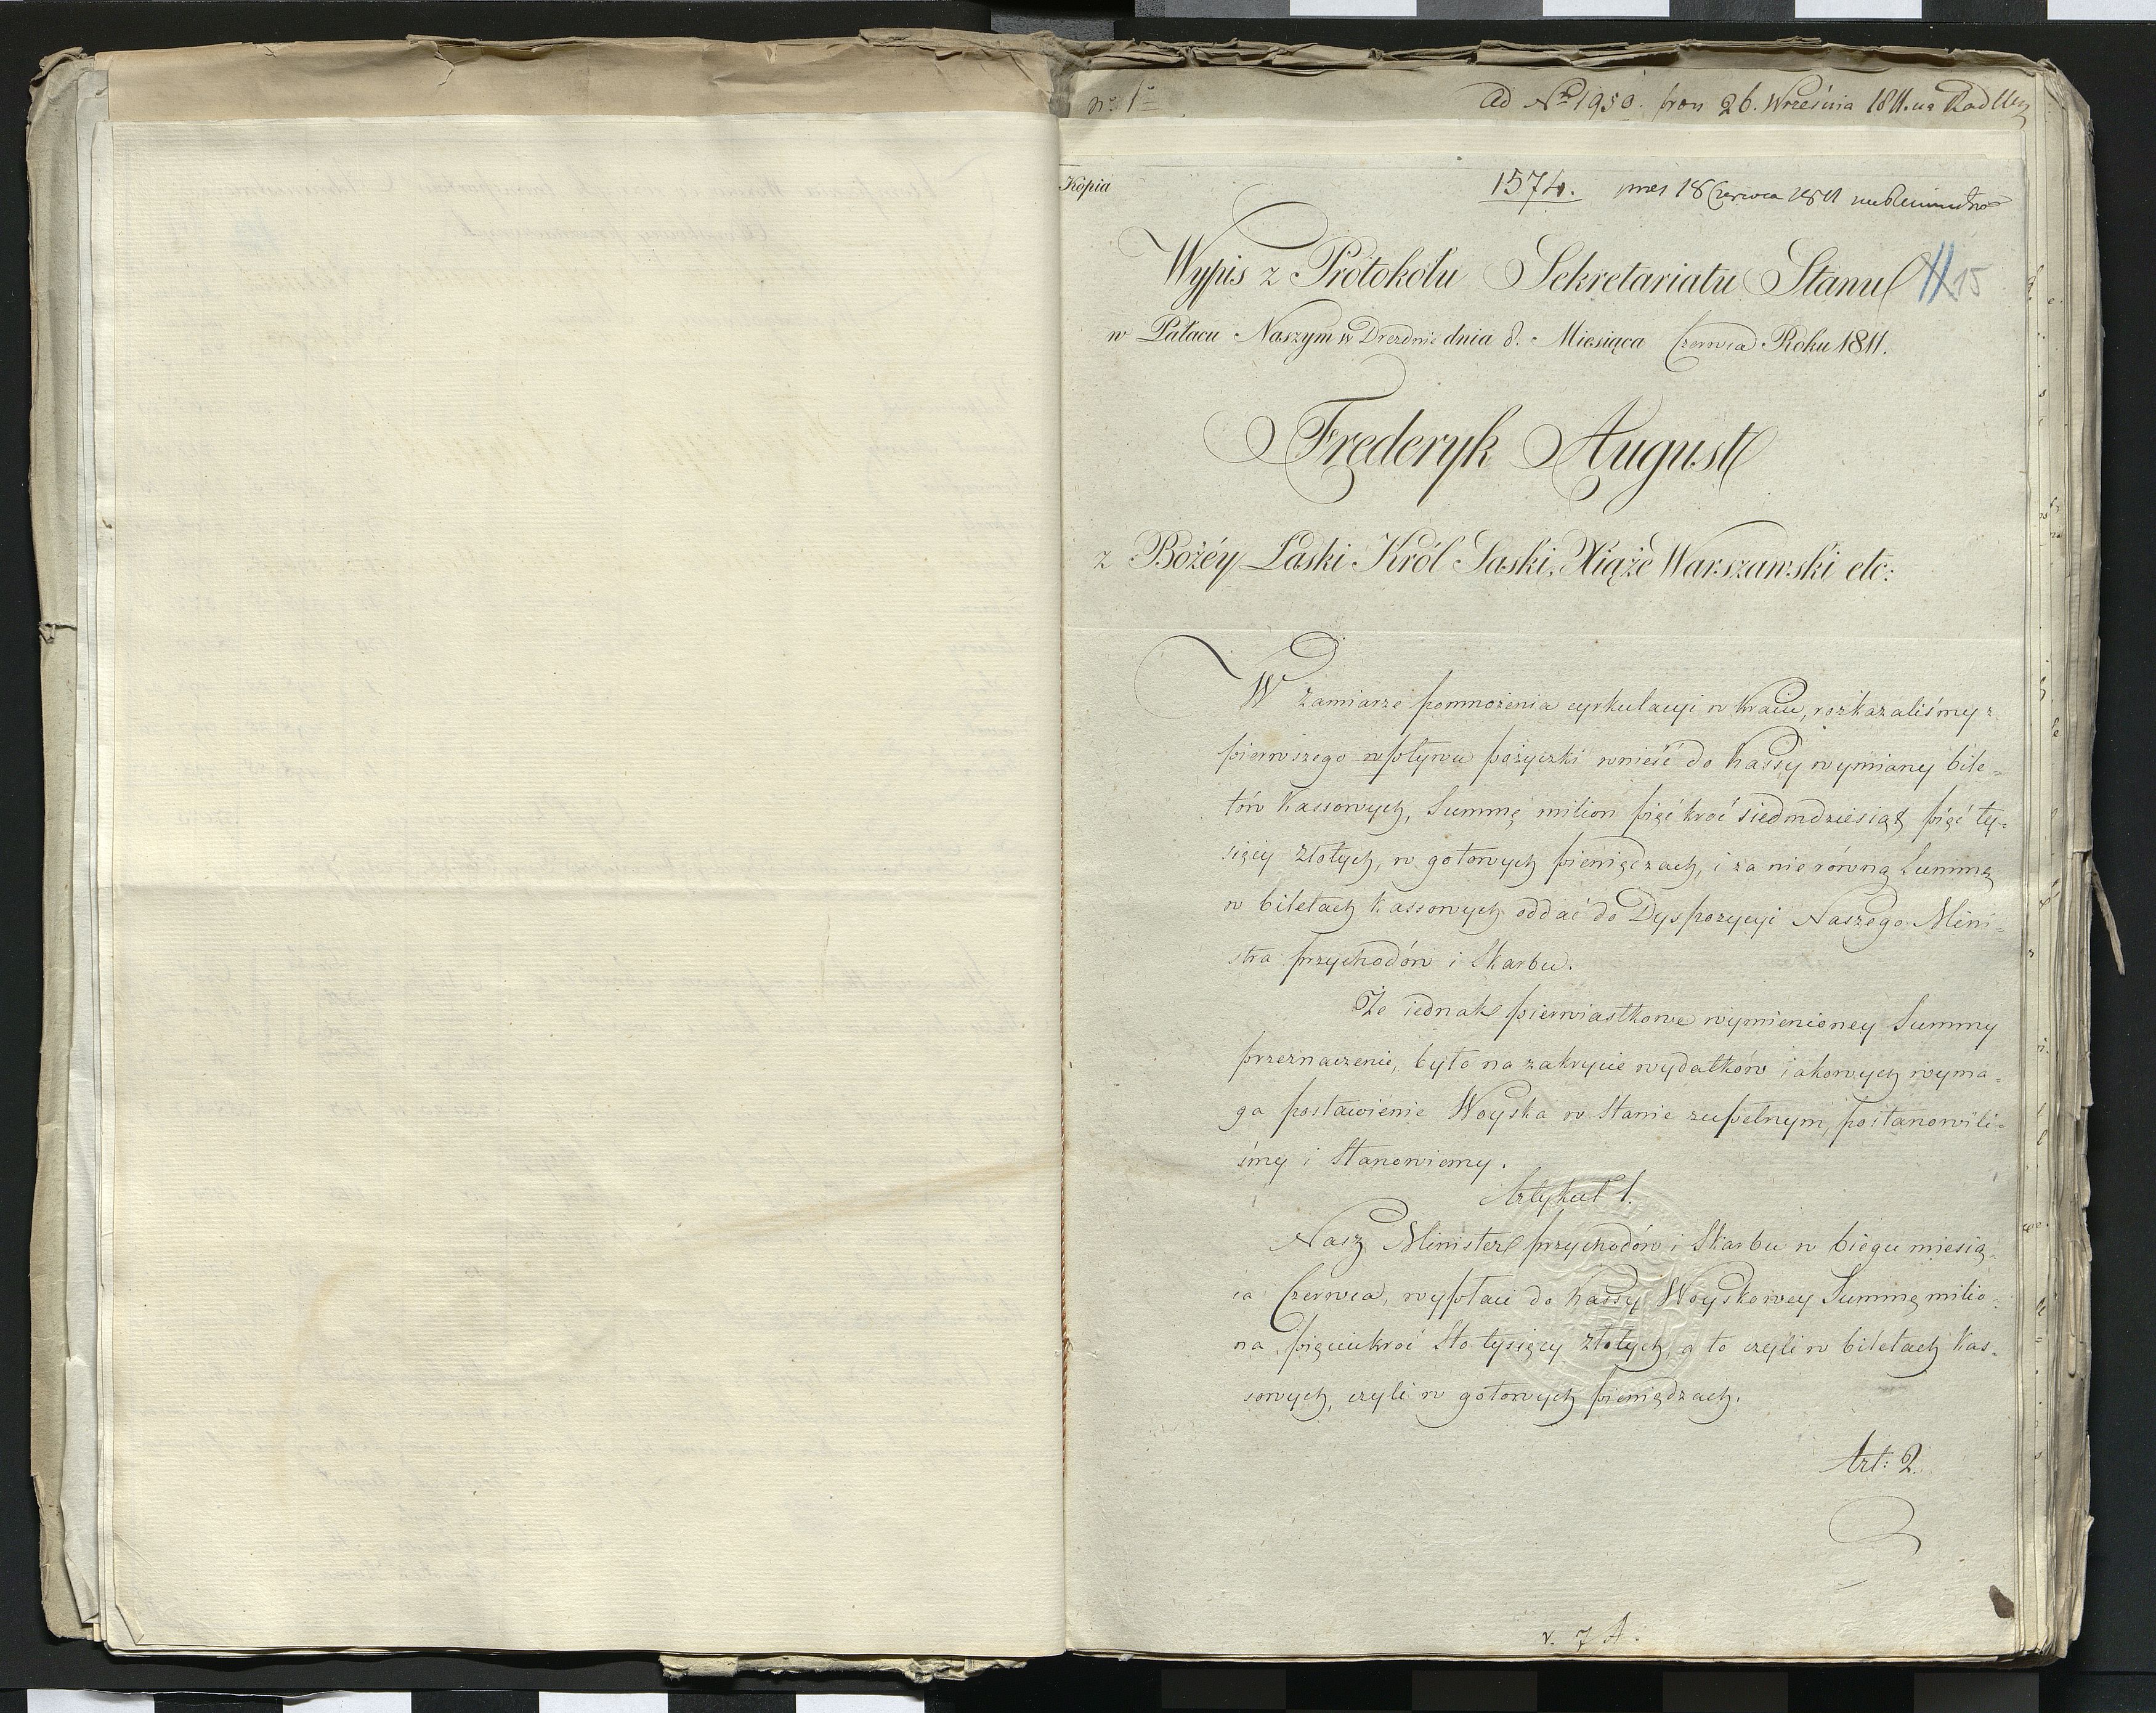 nro 1o
ad Nr 1950. 26. Września 1811.
Kopia
1574. 18 Czerwca 1811
Wypis z Protokółu Sekretariatu Stanu 15
w Pałacu Naszym w Dreźnie dnia 8. Miesiąca Czerwca Roku 1811.
Fręderyk August
z Bożéy Łaski Król Saski, Xiąże Warszawski etc:
W zamiarze pomnożenia cyrkulacyi w kraiu, rozkazaliśmy z
pierwszego wpływu pożyczki wnieść do Kassy wymiany bile=
tów Kassowych, Summę milion pięćkroć siedmdziesiąt pięć ty=
sięcy złotych, w gotowych pieniędzach, i za nie równą Summę
w biletach Kassowych oddać do Dyspozycyi Naszego Mini=
stra przychodów i Skarbu.
Że iednak pierwiastkowe wymienioney Summy
przeznaczenie, było na zakrycie wydatków iakowych wyma=
ga postawienie Woyska w Stanie zupełnym, postanowili=
śmy i Stanowiemy.
Artykuł 1.
Nasz Minister przychodów i Skarbu w biegu miesią=
ca Czerwca, wypłaci do Kassy Woyskowey Summę milio=
na pięciukroć Sto tysięcy złotych, a to czyli w biletach Kas=
sowych, czyli w gotowych pieniędzach.
Art: 2.